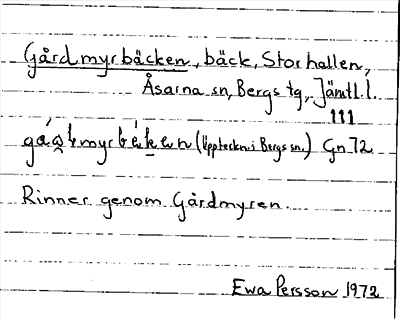 Gårdmyrbäcken, bäck, Storhallen,
Åsarna sn, Bergs tg, Jämtl. l.
111
(Uppteckn. i Bergs sn.) Gn 72
Rinner genom Gårdmyren.
Ewa Persson 1972